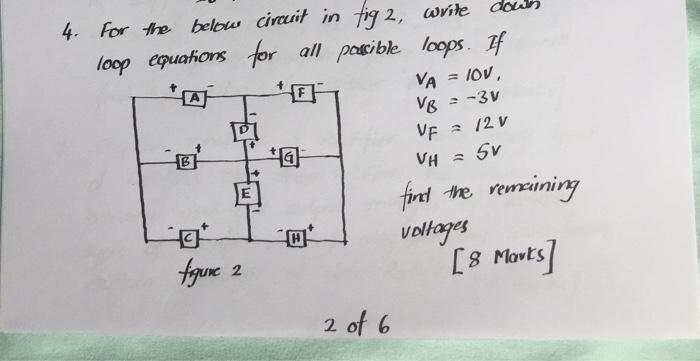 4. For the below circuit in fig 2, write down
loop equations for all possible loops. If
VA = 10V,
VB = -3V
VF = 12V
VH = 5V
find the remaining
voltages
[8 Marks]
+ A - + F -
- D +
- B + + G -
+ E -
- C + - H +
figure 2
2 of 6